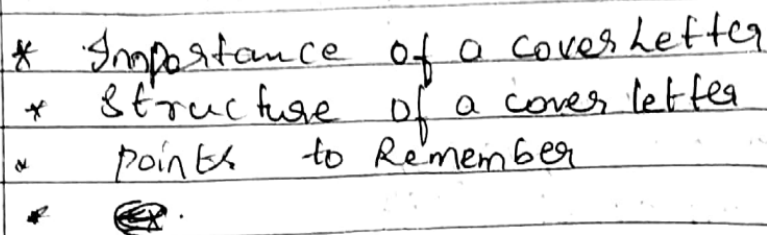 * Importance of a cover Letter
* Structure of a cover letter
* points to Remember
*